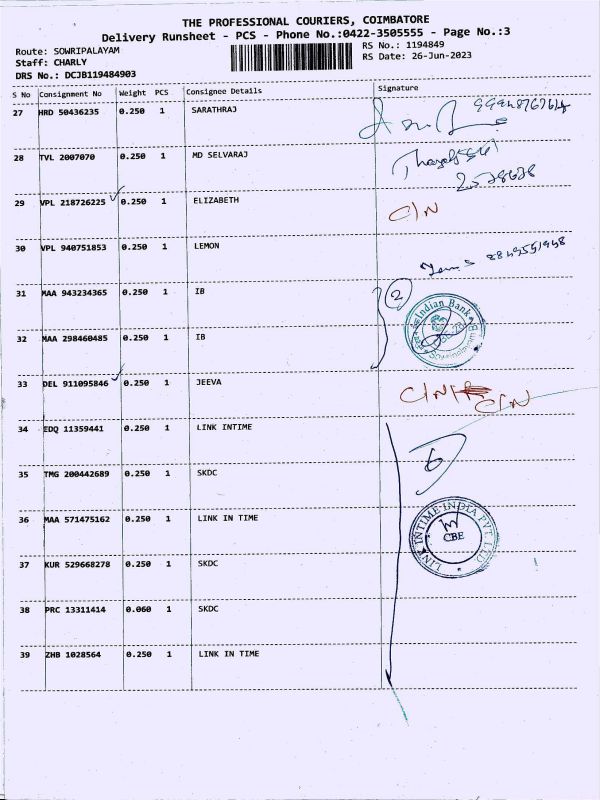 THE PROFESSIONAL COURIERS, COIMBATORE
Delivery Runsheet - PCS - Phone No.:0422-3505555 - Page No.:3
Route: SOWRIPALAYAM
Staff: CHARLY
DRS No.: DCJB119484903
RS No.: 1194849
RS Date: 26-Jun-2023
S No Consignment No Weight PCS Consignee Details Signature
27 HRD 50436235 0.250 1 SARATHRAJ
28 TVL 2007070 0.250 1 MD SELVARAJ
29 VPL 218726225 0.250 1 ELIZABETH C/N
30 VPL 940751853 0.250 1 LEMON
31 MAA 943234365 0.250 1 IB 2
Indian Bank
32 MAA 298460485 0.250 1 IB
33 DEL 911095846 0.250 1 JEEVA C/N C/N
34 EDQ 11359441 0.250 1 LINK INTIME
6
35 TMG 200442689 0.250 1 SKDC
36 MAA 571475162 0.250 1 LINK IN TIME
LINK INTIME INDIA PVT LTD
CBE
37 KUR 529668278 0.250 1 SKDC
38 PRC 13311414 0.060 1 SKDC
39 ZHB 1028564 0.250 1 LINK IN TIME